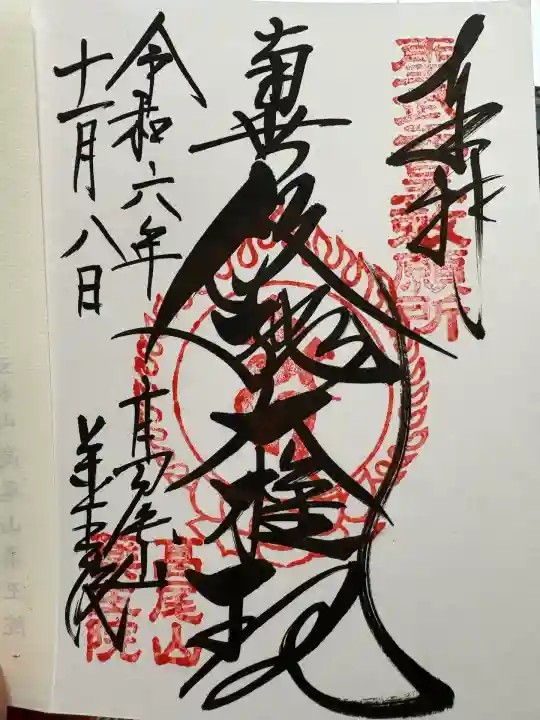 奉拝
南無飯縄大権現
令和六年
十一月八日
高尾山
薬王院
高尾山
薬王院